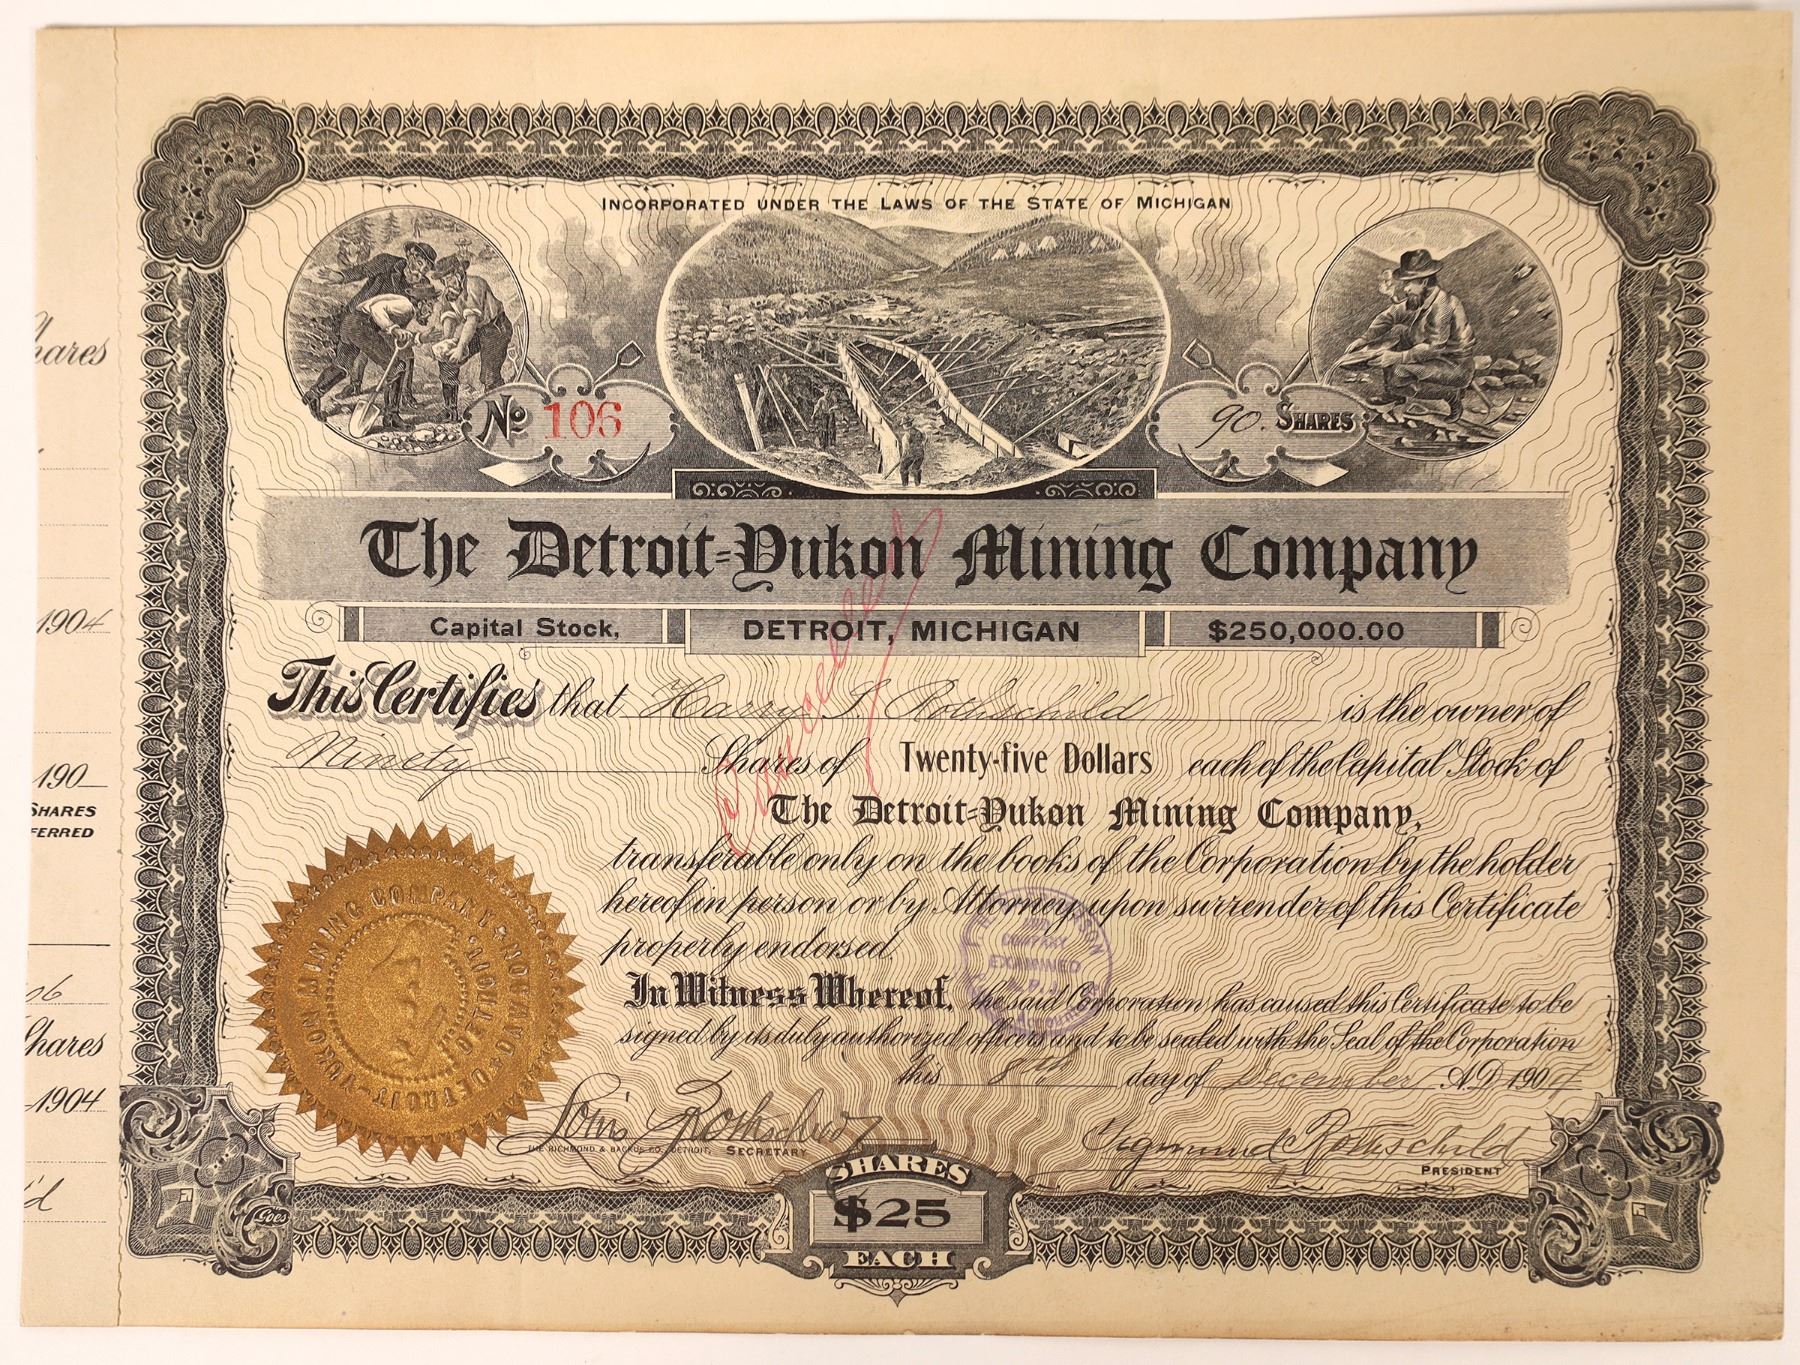 INCORPORATED UNDER THE LAWS OF THE STATE OF MICHIGAN
No 106
90. SHARES
The Detroit-Yukon Mining Company
Capital Stock, DETROIT, MICHIGAN $250,000.00
Cancelled
This Certifies that Harry S. Rothschild is the owner of
Ninety Shares of Twenty-five Dollars each of the Capital Stock of
The Detroit-Yukon Mining Company,
transferable only on the books of the Corporation by the holder
hereof in person or by Attorney, upon surrender of this Certificate
properly endorsed.
In Witness Whereof, the said Corporation has caused this Certificate to be
signed by its duly authorized officers and to be sealed with the Seal of the Corporation
this 8th day of December A.D. 1904
Louis Rothschild
THE RICHMOND & BACKUS CO. DETROIT. SECRETARY
Sigmund Rothschild
PRESIDENT
SHARES
$25
EACH
Goes
DETROIT-YUKON MINING COMPANY
DETROIT, MICH.
COMPANY
EXAMINED
Shares
1904
190
SHARES
FERRED
06
Shares
1904
'd